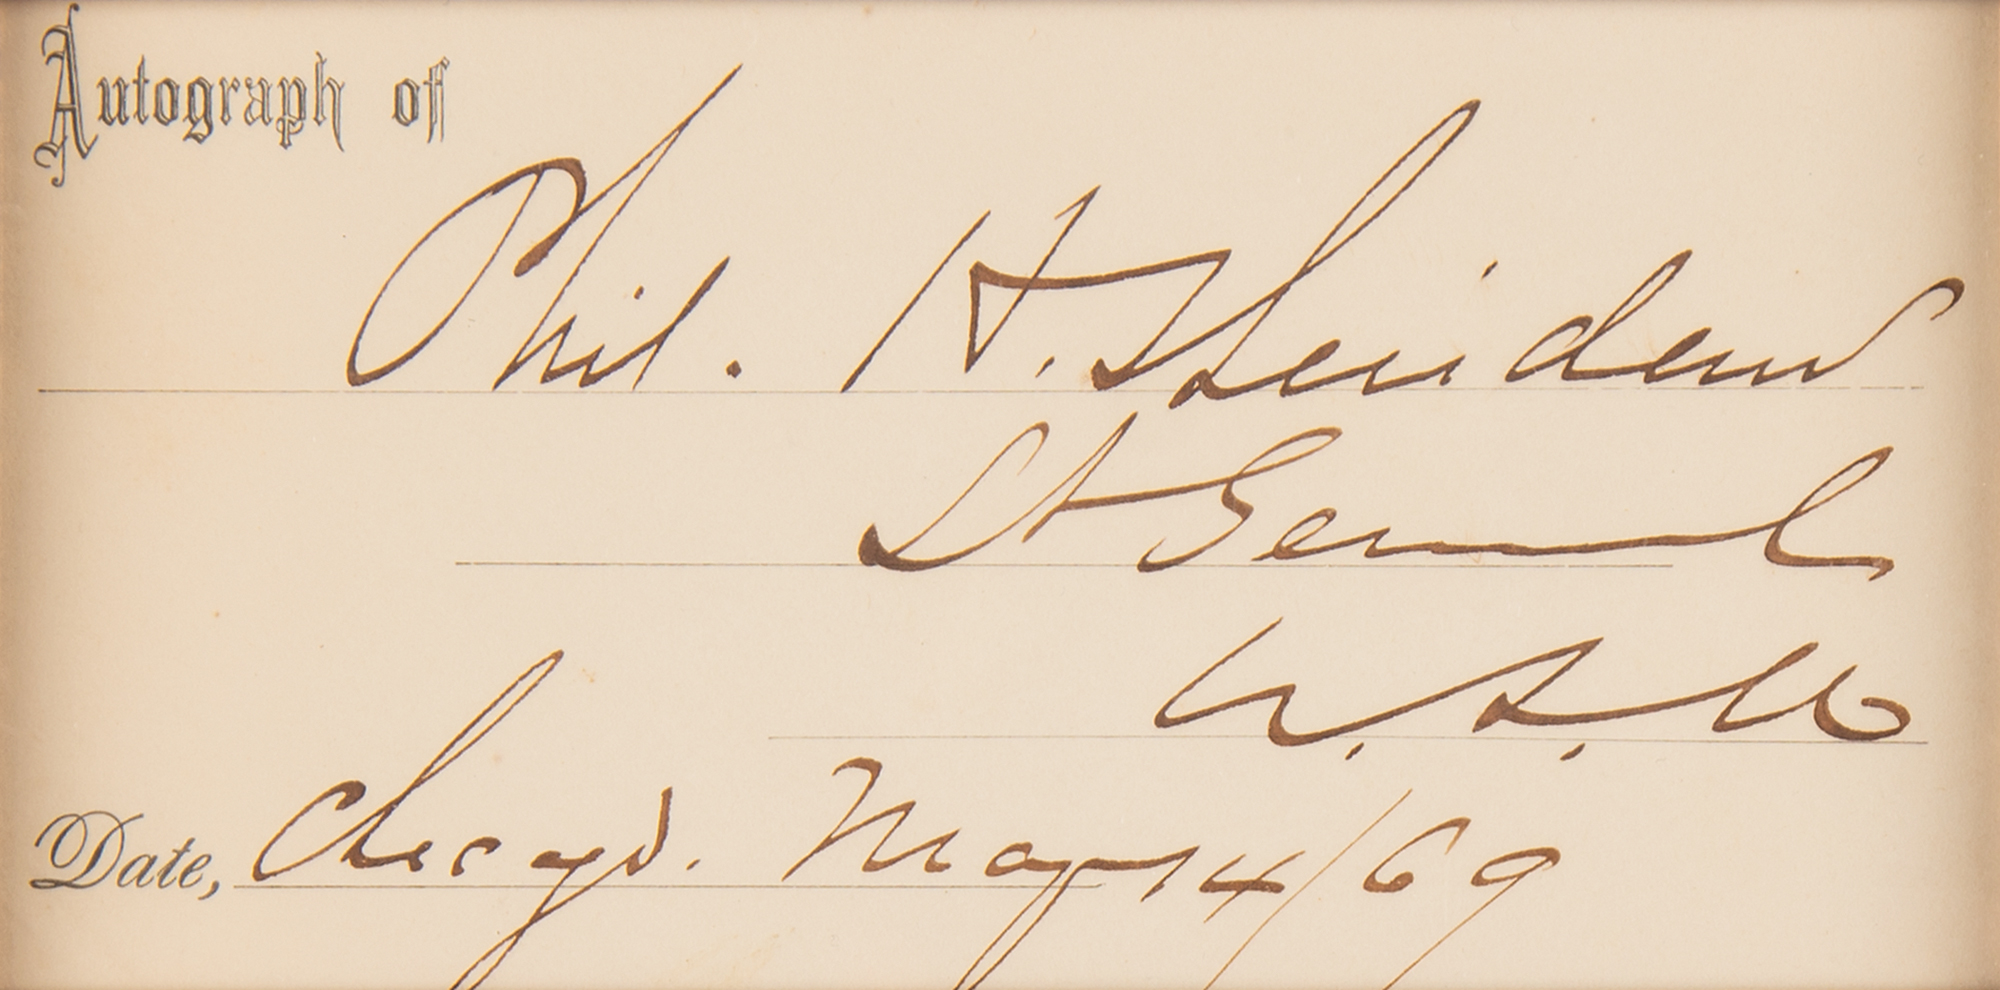 Autograph of
Phil. H. Sheridan
Lt General
U.S.A
Date, Chicago. May 14/69